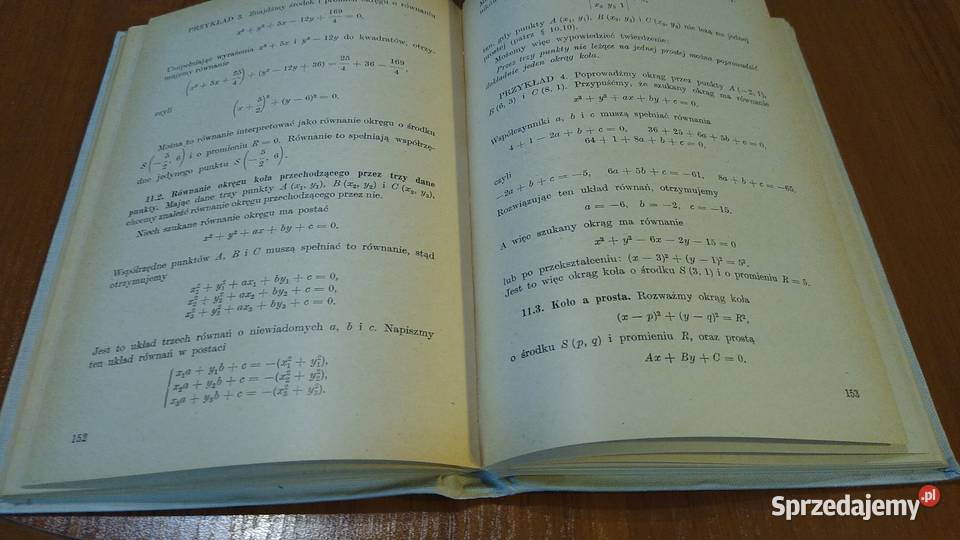 PRZYKŁAD 3. Znajdźmy środek i promień okręgu o równaniu
x² + y² + 5x − 12y + 169/4 = 0.
Uzupełniając wyrażenia x² + 5x i y² − 12y do kwadratów, otrzy-
mujemy równanie
(x² + 5x + 25/4) + (y² − 12y + 36) = 25/4 + 36 − 169/4,
czyli
(x + 5/2)² + (y − 6)² = 0.
Można to równanie interpretować jako równanie okręgu o środku
S(−5/2, 6) i o promieniu R = 0. Równanie to spełniają współrzę-
dne jedynego punktu S(−5/2, 6).
11.2. Równanie okręgu koła przechodzącego przez trzy dane
punkty. Mając dane trzy punkty A(x₁, y₁), B(x₂, y₂) i C(x₃, y₃),
chcemy znaleźć równanie okręgu przechodzącego przez nie.
Niech szukane równanie okręgu ma postać
x² + y² + ax + by + c = 0.
Współrzędne punktów A, B i C muszą spełniać to równanie, stąd
otrzymujemy
x₁² + y₁² + ax₁ + by₁ + c = 0,
x₂² + y₂² + ax₂ + by₂ + c = 0,
x₃² + y₃² + ax₃ + by₃ + c = 0.
Jest to układ trzech równań o niewiadomych a, b i c. Napiszmy
ten układ równań w postaci
x₁a + y₁b + c = −(x₁² + y₁²),
x₂a + y₂b + c = −(x₂² + y₂²),
x₃a + y₃b + c = −(x₃² + y₃²).
152
x₃ y₃ 1
ten, gdy punkty A(x₁, y₁), B(x₂, y₂) i C(x₃, y₃) nie leżą na jednej
prostej (patrz § 10.10).
Możemy więc wypowiedzieć twierdzenie:
Przez trzy punkty nie leżące na jednej prostej można poprowadzić
dokładnie jeden okrąg koła.
PRZYKŁAD 4. Poprowadźmy okrąg przez punkty A(−2, 1),
B(6, 5) i C(8, 1). Przypuśćmy, że szukany okrąg ma równanie
x² + y² + ax + by + c = 0.
Współczynniki a, b i c muszą spełniać równania
4 + 1 − 2a + b + c = 0, 36 + 25 + 6a + 5b + c = 0,
64 + 1 + 8a + b + c = 0,
czyli
−2a + b + c = −5, 6a + 5b + c = −61, 8a + b + c = −65.
Rozwiązując ten układ równań, otrzymujemy
a = −6, b = −2, c = −15.
A więc szukany okrąg ma równanie
x² + y² − 6x − 2y − 15 = 0
lub po przekształceniu: (x − 3)² + (y − 1)² = 5².
Jest to więc okrąg koła o środku S(3, 1) i o promieniu R = 5.
11.3. Koło a prosta. Rozważmy okrąg koła
(x − p)² + (y − q)² = R²,
o środku S(p, q) i promieniu R, oraz prostą
Ax + By + C = 0.
153
Sprzedajemy.pl